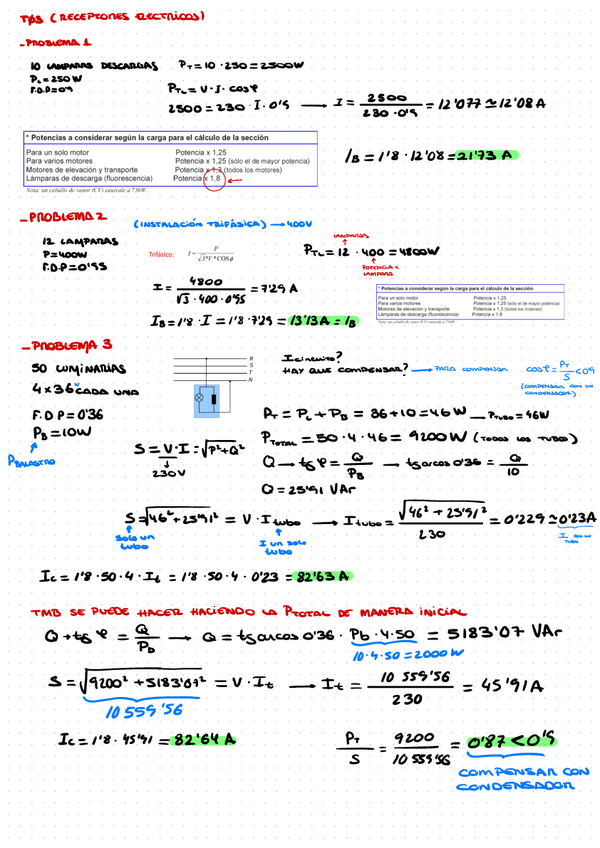 TØ3 (RECEPTORES ELECTRICOS)
- PROBLEMA 1
10 LAMPARAS DESCARGAS
PL = 250W
F.D.P = 0'9
PT = 10 · 250 = 2500W
PTL = V · I · cos φ
2500 = 230 · I · 0'9 → I = 2500 / 230 · 0'9 = 12'077 ≃ 12'08 A
* Potencias a considerar según la carga para el cálculo de la sección
Para un solo motor Potencia x 1,25
Para varios motores Potencia x 1,25 (sólo el de mayor potencia)
Motores de elevación y transporte Potencia x 1,3 (todos los motores)
Lámparas de descarga (fluorescencia) Potencia x 1,8
Nota: un caballo de vapor (CV) equivale a 736W.
IB = 1'8 · 12'08 = 21'73 A
- PROBLEMA 2
(INSTALACIÓN TRIFÁSICA) → 400V
12 LAMPARAS
P = 400W
F.D.P = 0'95
Trifásico: I = P / √3*V*COS ϕ
LAMPARAS
PTL = 12 · 400 = 4800W
POTENCIA x LAMPARA
I = 4800 / √3 · 400 · 0'95 = 7'29 A
IB = 1'8 · I = 1'8 · 7'29 = 13'13A = IB
* Potencias a considerar según la carga para el cálculo de la sección
Para un solo motor Potencia x 1,25
Para varios motores Potencia x 1,25 (sólo el de mayor potencia)
Motores de elevación y transporte Potencia x 1,3 (todos los motores)
Lámparas de descarga (fluorescencia) Potencia x 1,8
Nota: un caballo de vapor (CV) equivale a 736W.
- PROBLEMA 3
50 LUMINARIAS
4 x 36W CADA UNA
F.D.P = 0'36
PB = 10W
PBALASTRO
R
S
T
N
I circuito?
HAY QUE COMPENSAR? → PARA COMPENSAR cos φ = PT / S < 0'9
(COMPENSAR CON UN CONDENSADOR)
PT = PL + PB = 36 + 10 = 46 W → PTUBO = 46W
PTOTAL = 50 · 4 · 46 = 9200W (TODOS LOS TUBOS)
S = V · I = √P² + Q²
230V
Q → tg φ = Q / PB → tg arcos 0'36 = Q / 10
Q = 25'91 VAr
S = √46² + 25'91² = V · I tubo → I tubo = √46² + 25'91² / 230 = 0'229 ≃ 0'23A
Solo un tubo
I un solo tubo
I solo un tubo
IC = 1'8 · 50 · 4 · It = 1'8 · 50 · 4 · 0'23 = 82'63 A
TMB SE PUEDE HACER HACIENDO LA PTOTAL DE MANERA INICIAL
Q → tg φ = Q / Pb → Q = tg arcos 0'36 · Pb · 4 · 50 = 5183'07 VAr
10 · 4 · 50 = 2000W
S = √9200² + 5183'07² = V · It → It = 10 559'56 / 230 = 45'91 A
10 559'56
IC = 1'8 · 45'91 = 82'64 A
PT / S = 9200 / 10 559'56 = 0'87 < 0'9
COMPENSAR CON
CONDENSADOR